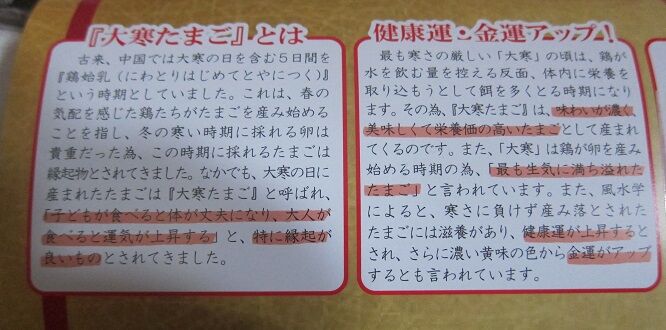 『大寒たまご』とは
古来、中国では大寒の日を含む５日間を
『鶏始乳（にわとりはじめてとやにつく）』
という時期としていました。これは、春の
気配を感じた鶏たちがたまごを産み始める
ことを指し、冬の寒い時期に採れる卵は
貴重だった為、この時期に採れるたまごは
縁起物とされてきました。なかでも、大寒の日に
産まれたたまごは『大寒たまご』と呼ばれ、
「子どもが食べると体が丈夫になり、大人が
食べると運気が上昇する」と、特に縁起が
良いものとされてきました。
健康運・金運アップ！
最も寒さの厳しい「大寒」の頃は、鶏が
水を飲む量を控える反面、体内に栄養を
取り込もうとして餌を多くとる時期になり
ます。その為、『大寒たまご』は、味わいが濃く、
美味しくて栄養価の高いたまごとして産まれ
てくるのです。また、「大寒」は鶏が卵を産み
始める時期の為、「最も生気に満ち溢れた
たまご」と言われています。また、風水学
によると、寒さに負けず産み落とされた
たまごには滋養があり、健康運が上昇すると
され、さらに濃い黄味の色から金運がアップ
するとも言われています。